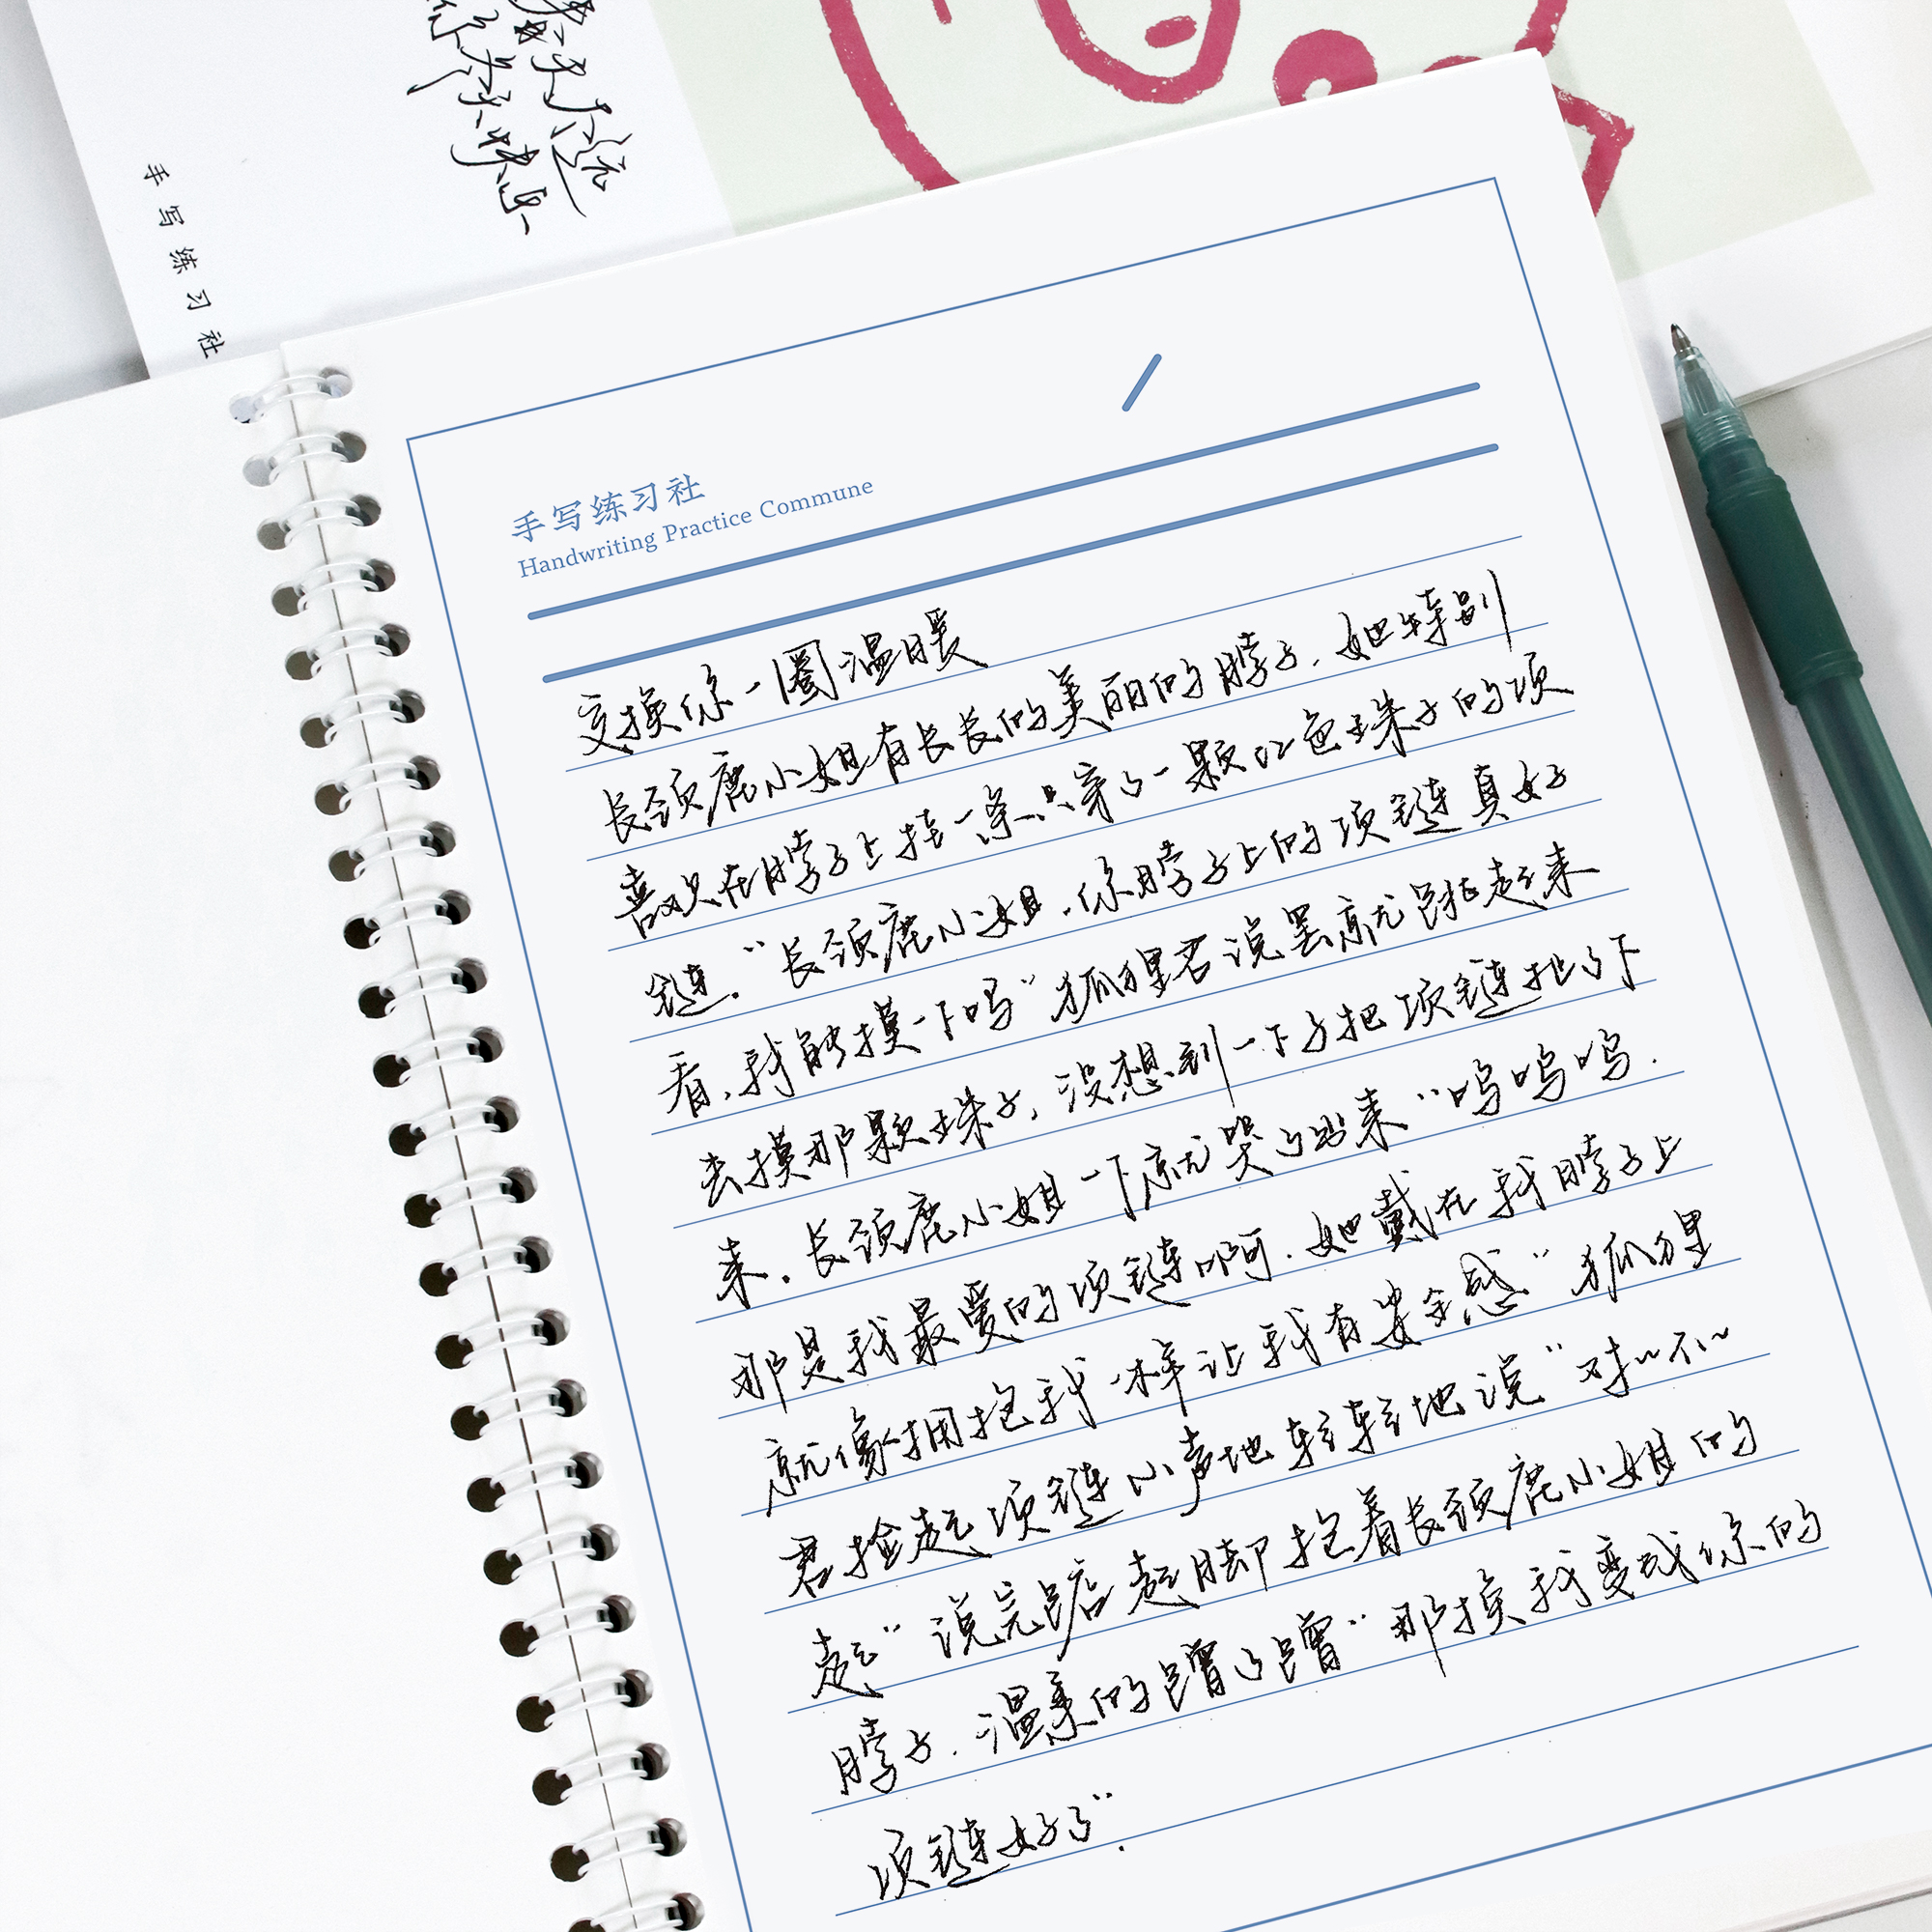 手写练习社
手写练习社
Handwriting Practice Commune
变换你一圈温暖
长颈鹿小姐有长长的美丽的脖子，她特别
喜欢在脖子上挂一条只穿了一颗红色珠子的项
链。“长颈鹿小姐，你脖子上的项链真好
看，我能摸一下吗”狐狸君说罢就踮起来
去摸那颗珠子，没想到一下子把项链扯了下
来。长颈鹿小姐一下就哭了出来“呜呜呜．
那是我最爱的项链啊．她戴在我脖子上
就像拥抱我一样让我有安全感”狐狸
君捡起项链小声地轻轻地说“对～不～
起”说完踮起脚抱着长颈鹿小姐的
脖子．温柔的蹭了蹭“那换我变成你的
项链好了”．